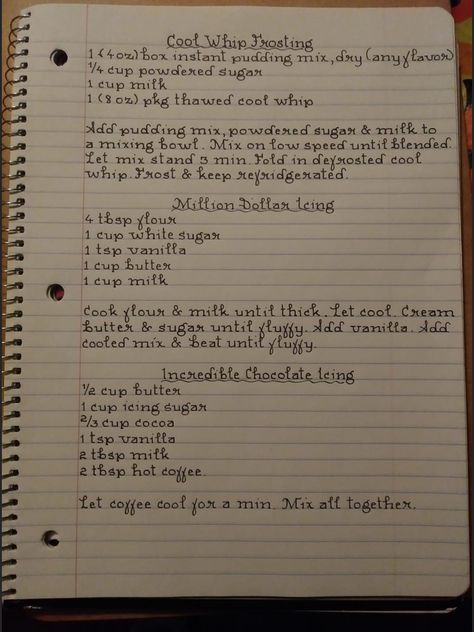 Cool Whip Frosting
1 (4oz) box instant pudding mix, dry (any flavor)
1/4 cup powdered sugar
1 cup milk
1 (8 oz) pkg thawed cool whip
Add pudding mix, powdered sugar & milk to
a mixing bowl. Mix on low speed until blended.
Let mix stand 3 min. Fold in defrosted cool
whip. Frost & keep refridgerated.
Million Dollar Icing
4 tbsp flour
1 cup white sugar
1 tsp vanilla
1 cup butter
1 cup milk
Cook flour & milk until thick. Let cool. Cream
butter & sugar until fluffy. Add vanilla. Add
cooled mix & beat until fluffy.
Incredible Chocolate Icing
1/2 cup butter
1 cup icing sugar
2/3 cup cocoa
1 tsp vanilla
2 tbsp milk
2 tbsp hot coffee.
Let coffee cool for a min. Mix all together.